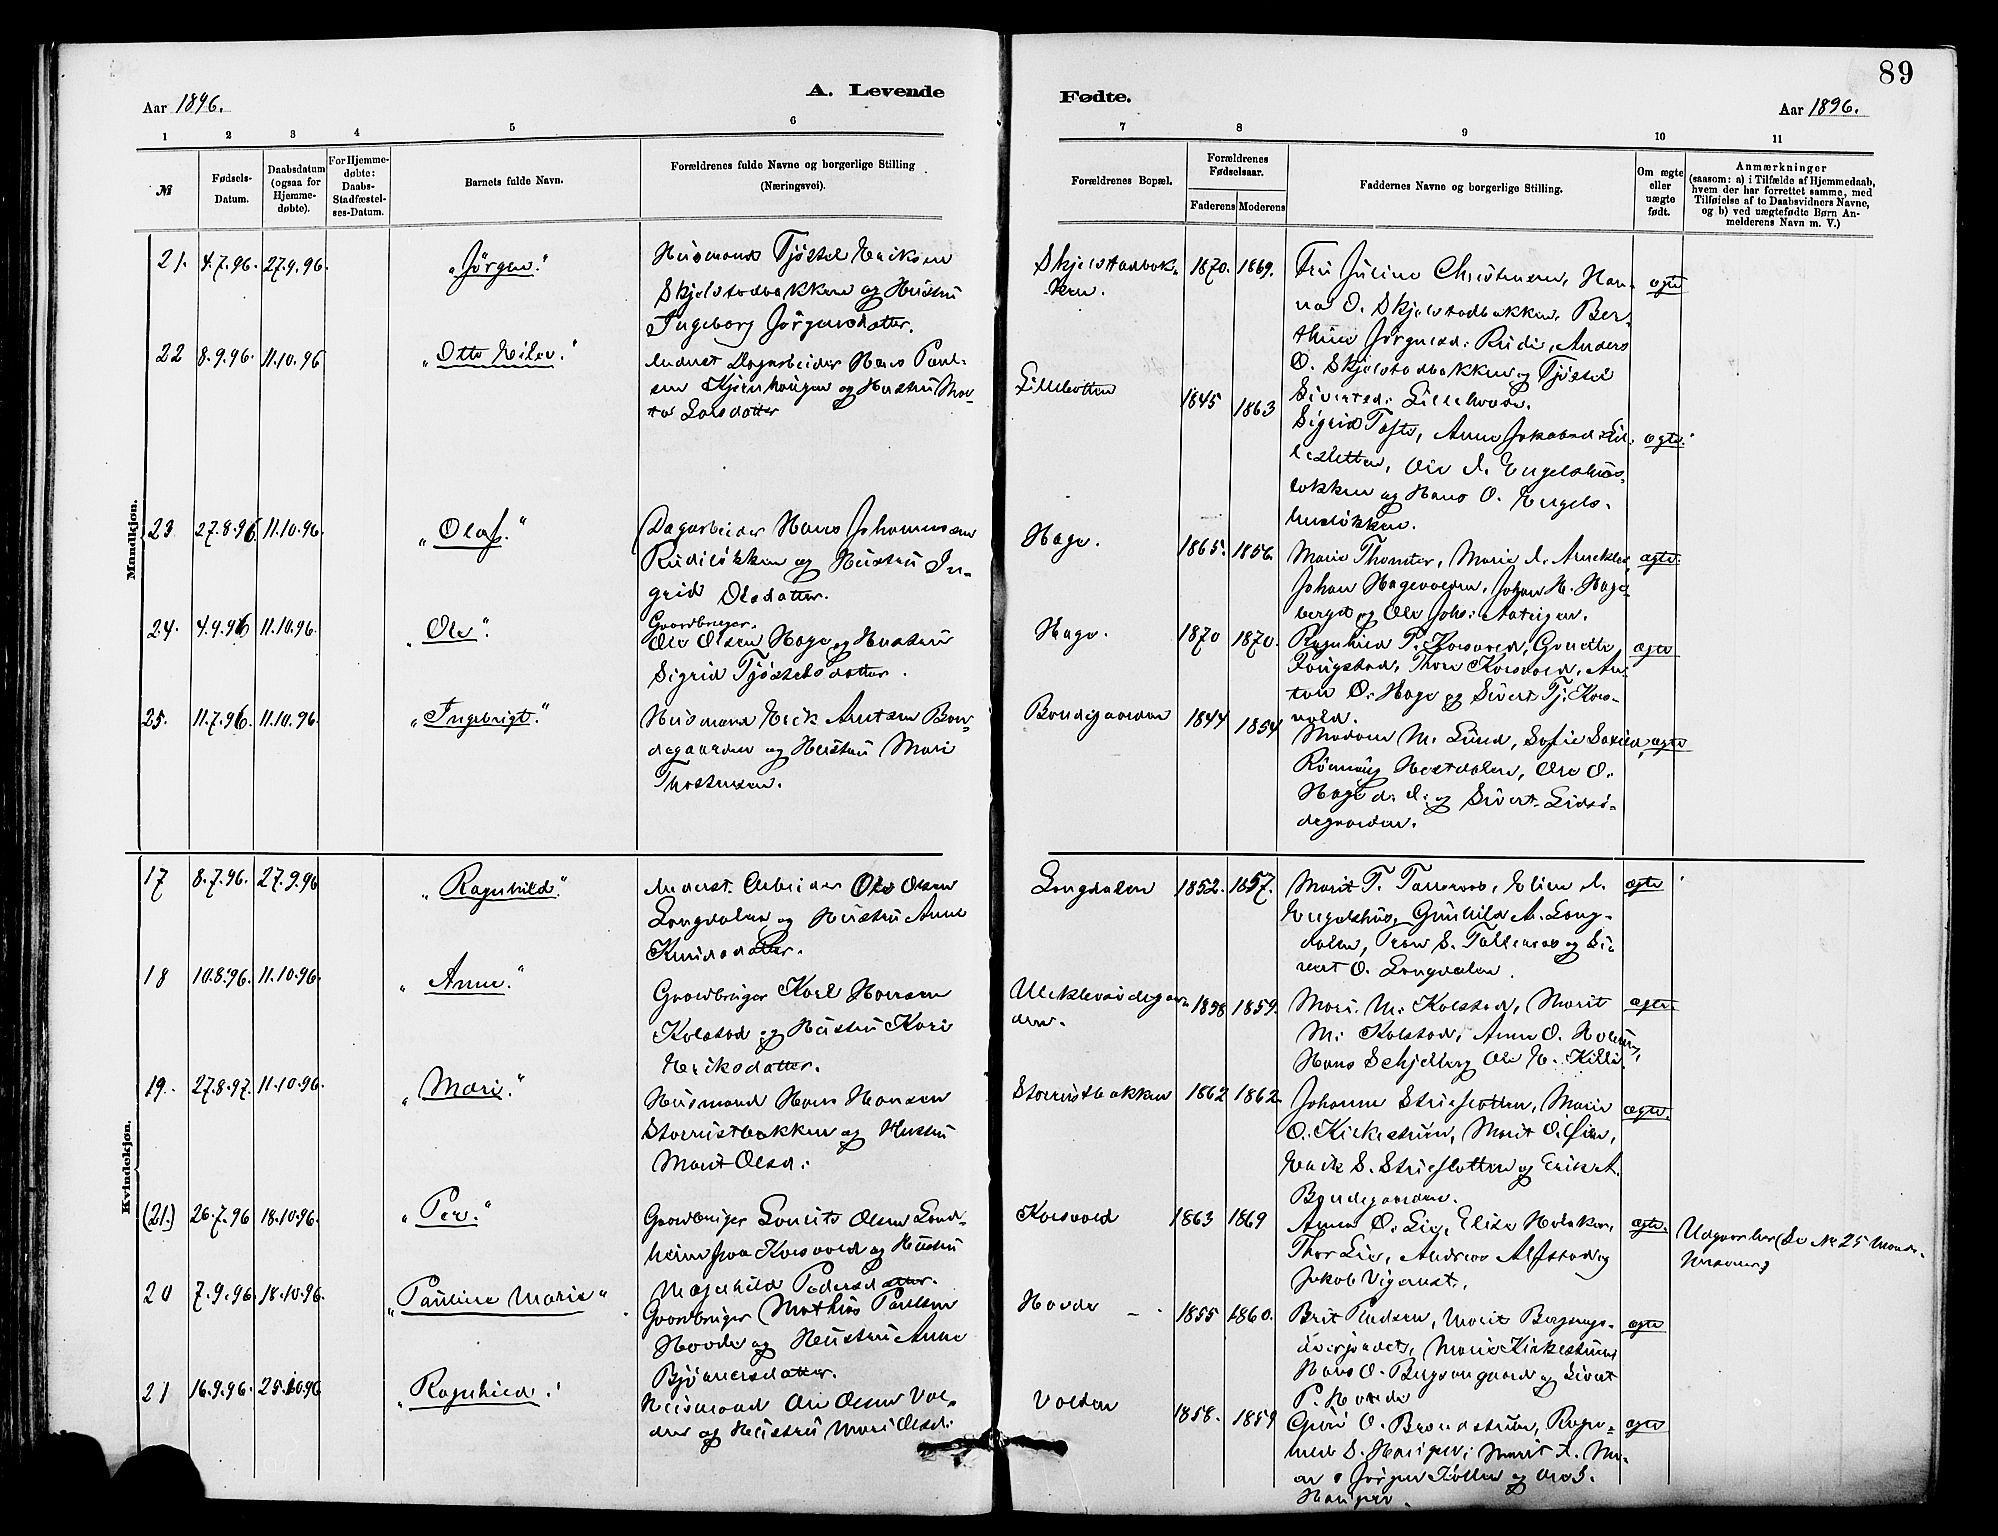 89
A. Levende
Fødte.
Aar 1896.
Aar 1896.
1 2 3 4 5 6
7 8 9 10 11
№
Fødsels-
Datum.
Daabsdatum
(ogsaa for
Hjemme-
døbte).
For Hjemme-
døbte:
Daabs-
Stadfæstel-
ses-Datum.
Barnets fulde Navn.
Forældrenes fulde Navne og borgerlige Stilling
(Næringsvei).
Forældrenes Bopæl.
Forældrenes
Fødselsaar.
Faderens Moderens
Faddernes Navne og borgerlige Stilling.
Om ægte
eller
uægte
født.
Anmærkninger
(saasom: a) i Tilfælde af Hjemmedaab,
hvem der har forrettet samme, med
Tilføielse af to Daabsvidners Navne,
og b) ved uægtefødte Børn An-
melderens Navn m. V.)
Mandkjøn.
21. 4.7.96. 27.9.96. "Jörgen."
Husmand Tjöstel Eriksen
Skjelstadbakken og Hustru
Ingeborg Jörgensdatter.
Skjelstadbak-
ken.
1870. 1869.
Fru Juline Christensen, Han-
na O. Skjelstadbakken, Ber-
thine Jörgensd: Rudi, Anders
O. Skjelstadbakken og Tjöstel
Sivertsd: Lillehovde.
ægte
22 8.9.96. 11.10.96 "Otto Eilev."
Inderst Dagarbeider Hans Paul-
sen Kjörnhaugen og Hustru Mar-
te Larsdatter
1845 1863
Sigrid Tofte, Anne Jakobsd: Lil-
lesletten, Ole I. Engelshus-
løkken og Hans O. Engels-
husløkken.
ægte.
23 27.8.96. 11.10.96. "Olaf."
Dagarbeider Hans Johannesen
Rudiløkken og Hustru In-
grid Olsdatter.
Hage.
1865. 1856.
Marie Thomter, Marie I.
Johan Hagevolden, Johan H. Hage-
berget og Ole Joh:
ægte.
24. 4.9.96 11.10.96. "Ole".
Gaardbruger.
Ole Olsen Hage og Hustru
Sigrid Tjöstelsdatter.
Hage.
1870 1870.
Ragnhild T. Korsvold, Gunille
Faugstad, Thore Korsvold, An-
ton O. Hage og Sivert Tj. Kors-
vold.
ægte
25. 11.7.96 11.10.96. "Ingebrigt."
Husmand Erik Antsen Bon-
degaarden og Hustru Mari
Thostensen.
Bondegaarden
1844 1854
Madam M. Lund, Sofie
Rönnaug Hestdalen, Ole O.
Hage d. I. og Sivert Lidsö-
degaarden.
ægte
Kvindekjøn.
17 8.7.96. 27.9.96 "Ragnhild."
Inderst. Arbeider Ole Olsen
Longdalen og Hustru Anne
Knudsdatter.
Longdalen
1852. 1857.
Marit T. Talleraas, Eline I.
Engelshus, Gunhild A. Long-
dalen, Tron S. Talleraas og Si-
vert O. Longdalen.
ægte
18 10.8.96. 11.10.96. "Anne."
Gaardbruger Karl Hansen
Kolstad og Hustru Kari
Eriksdatter.
1858 1859.
Mari. M. Kolstad, Marit
M. Kolstad, Anne O.
Hans Schjelberg Ole E. Killi.
ægte.
19. 27.8.97. 11.10.96. "Mari."
Husmand Hans Hansen
Storrustbakken og Hustru
Marit Olsd:
Storrustbakken
1862 1862.
Johanne Strieslotten, Marie
O. Kirkestuen, Marit O. Öien,
Erik S. Strieslotten og Erik A.
Bondegaarden.
ægte.
(21.) 26.7.96 18.10.96. "Per."
Gaardbruger Laurits Olsen Lond-
heim paa Korsvold og Hustru
Magnhild Pedersdatter.
Korsvold
1863 1869
Anna O. Lie, Elise
Thor Lie, Andreas Alfstad og
Jakob Vigerust.
ægte.
Udgaar her (Se № 25 Mand-
20 7.9.96. 18.10.96. "Pauline Marie"
Gaardbruger Mathias Paulsen
Hovde og Hustru Anne
Björnersdatter.
Hovde
1855 1860.
Brit Paulsen, Marit Bergsengs-
Marie Kirkestuen
Hans O. Bergsengaard og Sivert
P. Hovde
ægte
21 16.9.96. 25.10.96 "Ragnhild."
Husmand Ole Olsen Vol-
den og Hustru Mari Olsd:
Volden
1858. 1859
Guri O. Brændstuen, Ragn-
hild S. Haugen, Marit I. Mo-
en, Jørgen Kollen og Ole S.
Haugen.
ægte